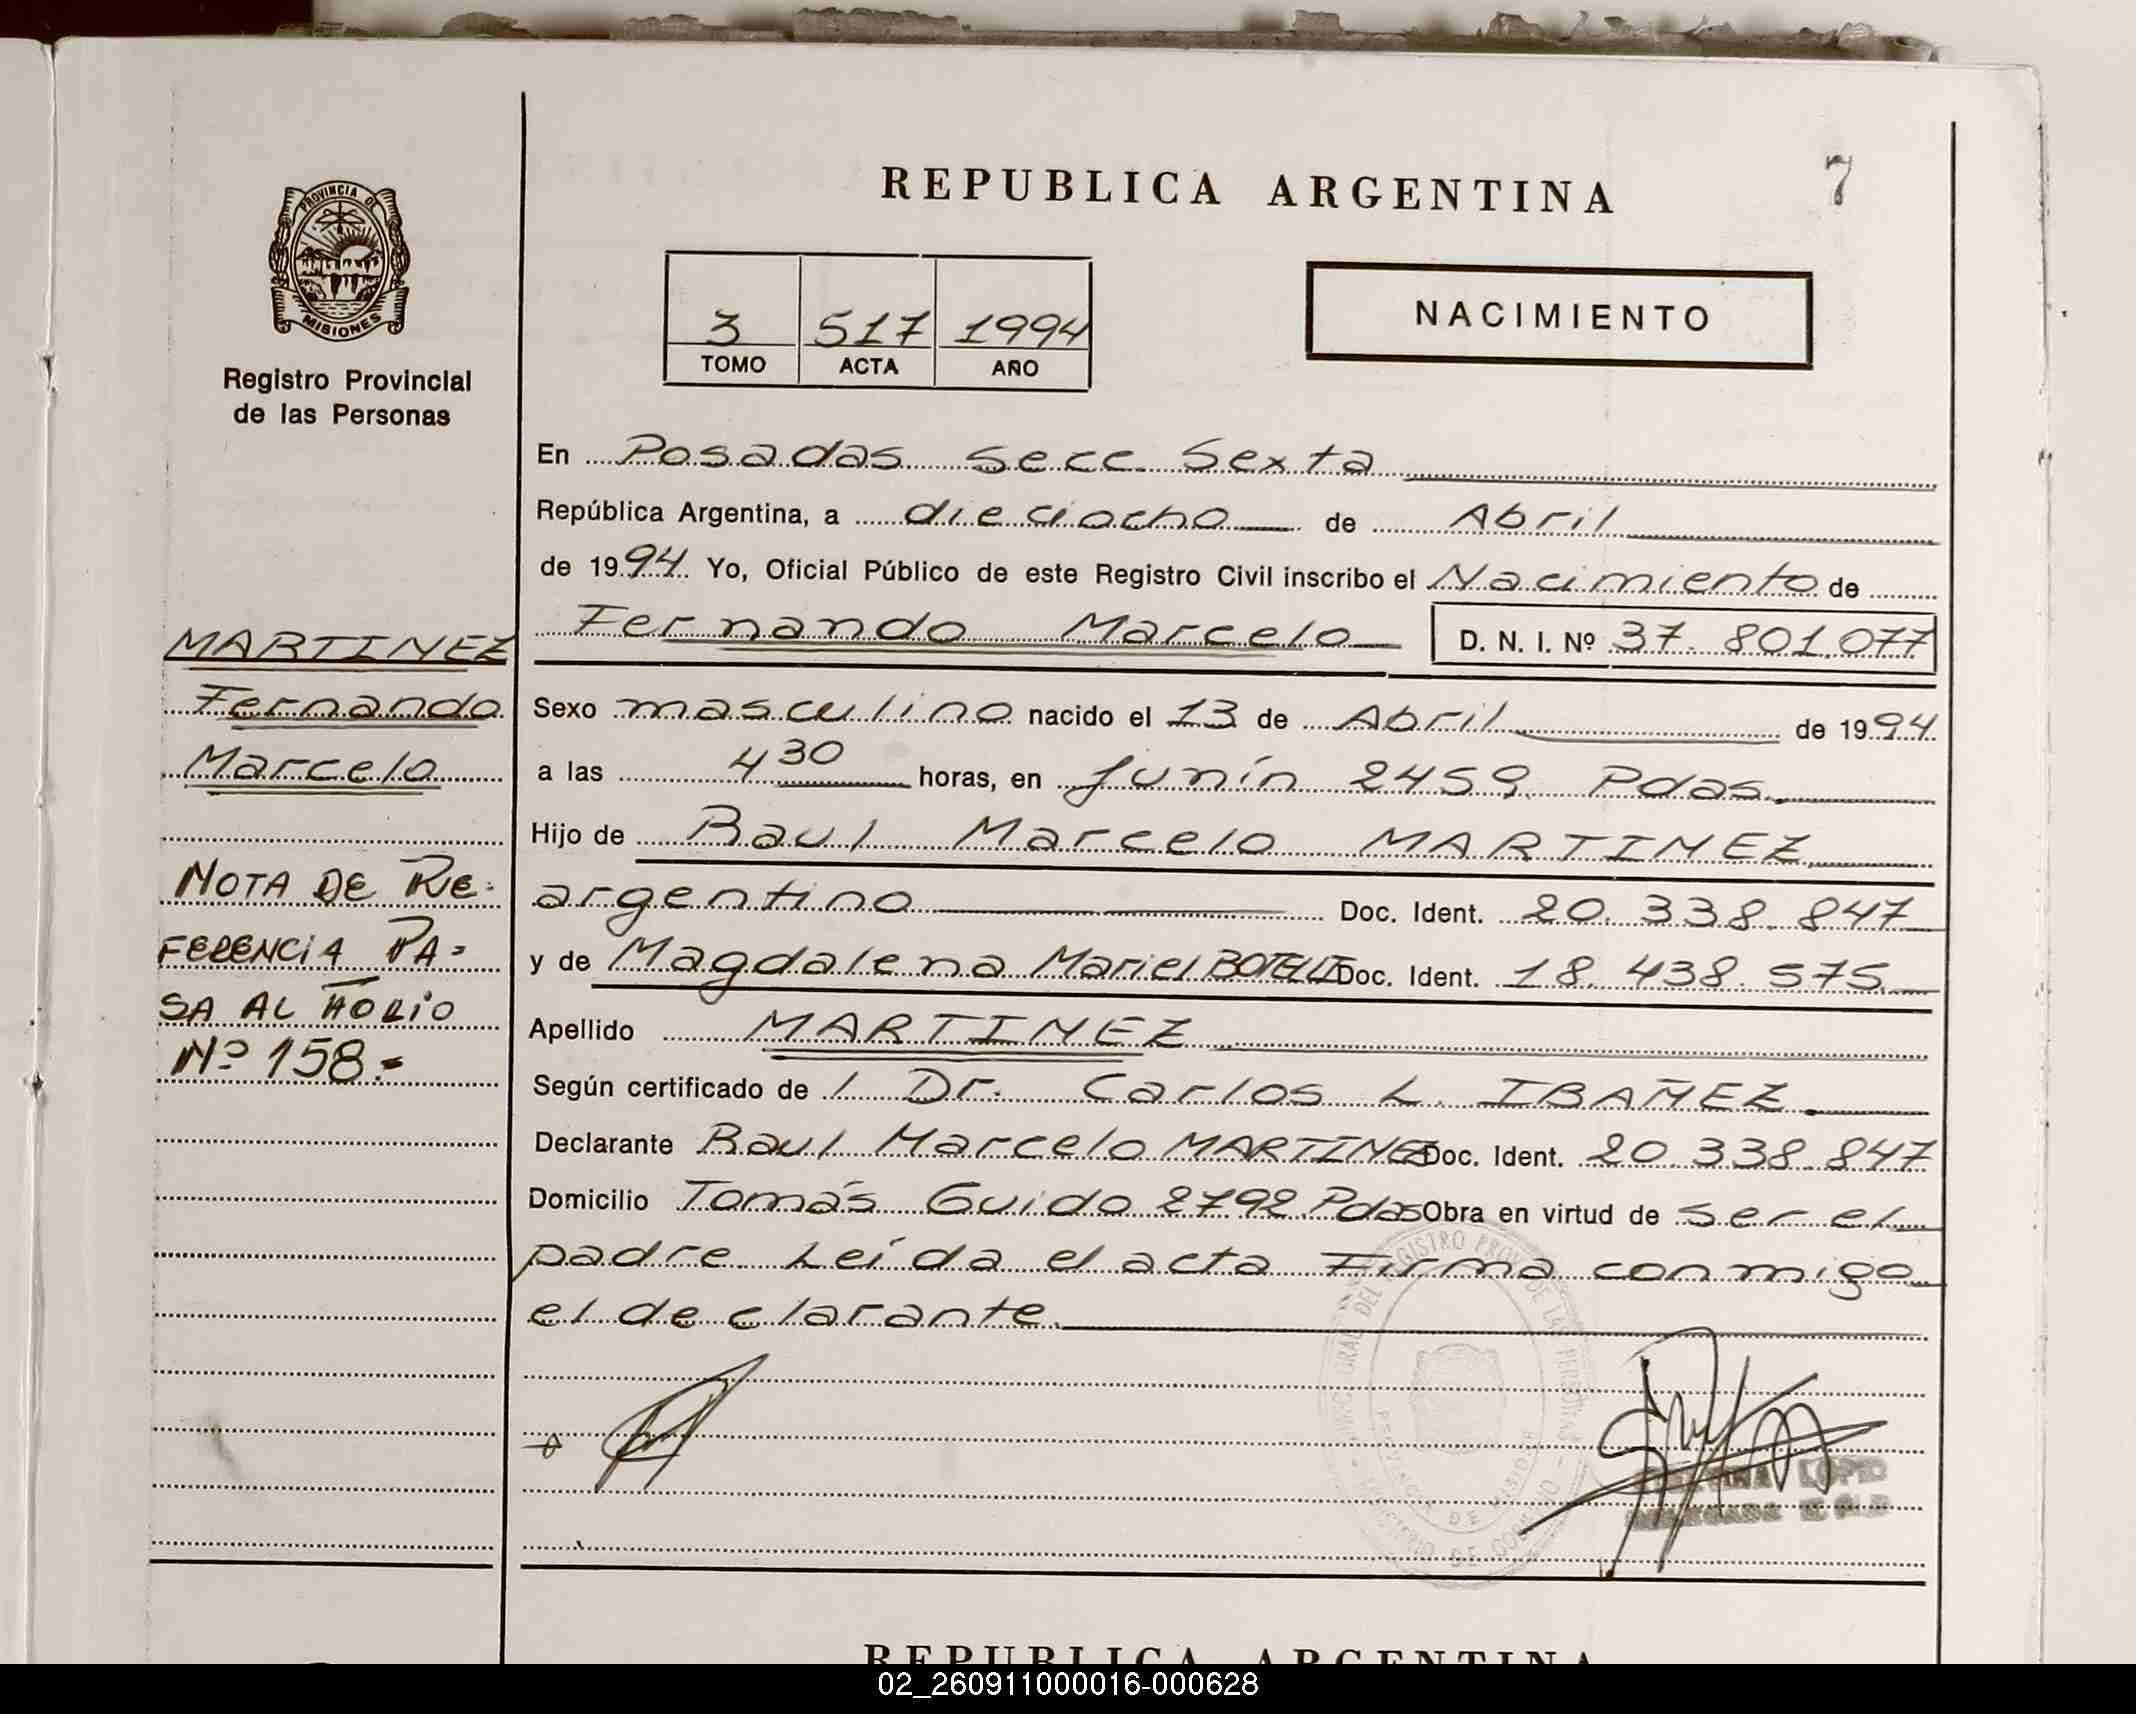 7
REPUBLICA ARGENTINA
PROVINCIA DE
MISIONES
Registro Provincial
de las Personas
3 517 1994
TOMO ACTA AÑO
NACIMIENTO
En Posadas Secc. Sexta
República Argentina, a dieciocho de Abril
de 1994 Yo, Oficial Público de este Registro Civil inscribo el Nacimiento de
Fernando Marcelo D. N. I. Nº 37.801.077
Sexo masculino nacido el 13 de Abril de 1994
a las 4 30 horas, en Junín 2459 Pdas.
Hijo de Raul Marcelo MARTINEZ
argentino Doc. Ident. 20.338.847
y de Magdalena Mariel Doc. Ident. 18.438.575
Apellido MARTINEZ
Según certificado de l Dr. Carlos L. IBAÑEZ.
Declarante Raul Marcelo MARTINEZ Doc. Ident. 20.338.847
Domicilio Tomás Guido 2792 Pdas Obra en virtud de ser el
padre. Leída el acta Firma conmigo
el declarante.
MARTINEZ
Fernando
Marcelo
NOTA DE RE-
FERENCiA PA-
SA AL
Nº 158.-
LOPEZ
REPUBLICA ARGENTINA
02_260911000016-000628